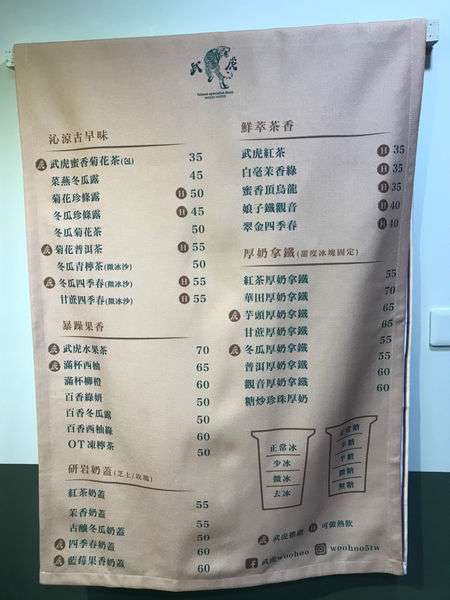 武 虎
沁涼古早味
武 武虎蜜香菊花茶(包) 35
菜燕冬瓜露 45
菊花珍條露 H 50
冬瓜珍條露 H 45
冬瓜菊花茶 50
武 菊花普洱茶 H 55
冬瓜青檸茶(微冰沙) 50
武 冬瓜四季春(微冰沙) H 55
甘蔗四季春(微冰沙) H 55
暴躁果香
武 武虎水果茶 70
武 滿杯西柚 65
滿杯柳橙 60
百香綠妍 50
百香冬瓜露 50
百香西柚綠 60
OT凍檸茶 50
研岩奶蓋(芝士/玫瑰)
紅茶奶蓋 55
茉香奶蓋 50
古釀冬瓜奶蓋 55
武 四季春奶蓋 60
武 藍莓果香奶蓋 60
鮮萃茶香
武虎紅茶 H 35
白毫茉香綠 H 35
蜜香頂烏龍 H 35
娘子鐵觀音 H 40
翠金四季春 H 40
厚奶拿鐵(甜度冰塊固定)
紅茶厚奶拿鐵 55
華田厚奶拿鐵 70
武 芋頭厚奶拿鐵 65
甘蔗厚奶拿鐵 65
武 冬瓜厚奶拿鐵 55
普洱厚奶拿鐵 55
觀音厚奶拿鐵 60
糖炒珍珠厚奶 60
正常冰
少冰
微冰
去冰
正常糖
少糖
半糖
微糖
無糖
武 武虎推薦 H 可做熱飲
武虎woohoo woohoo5tw